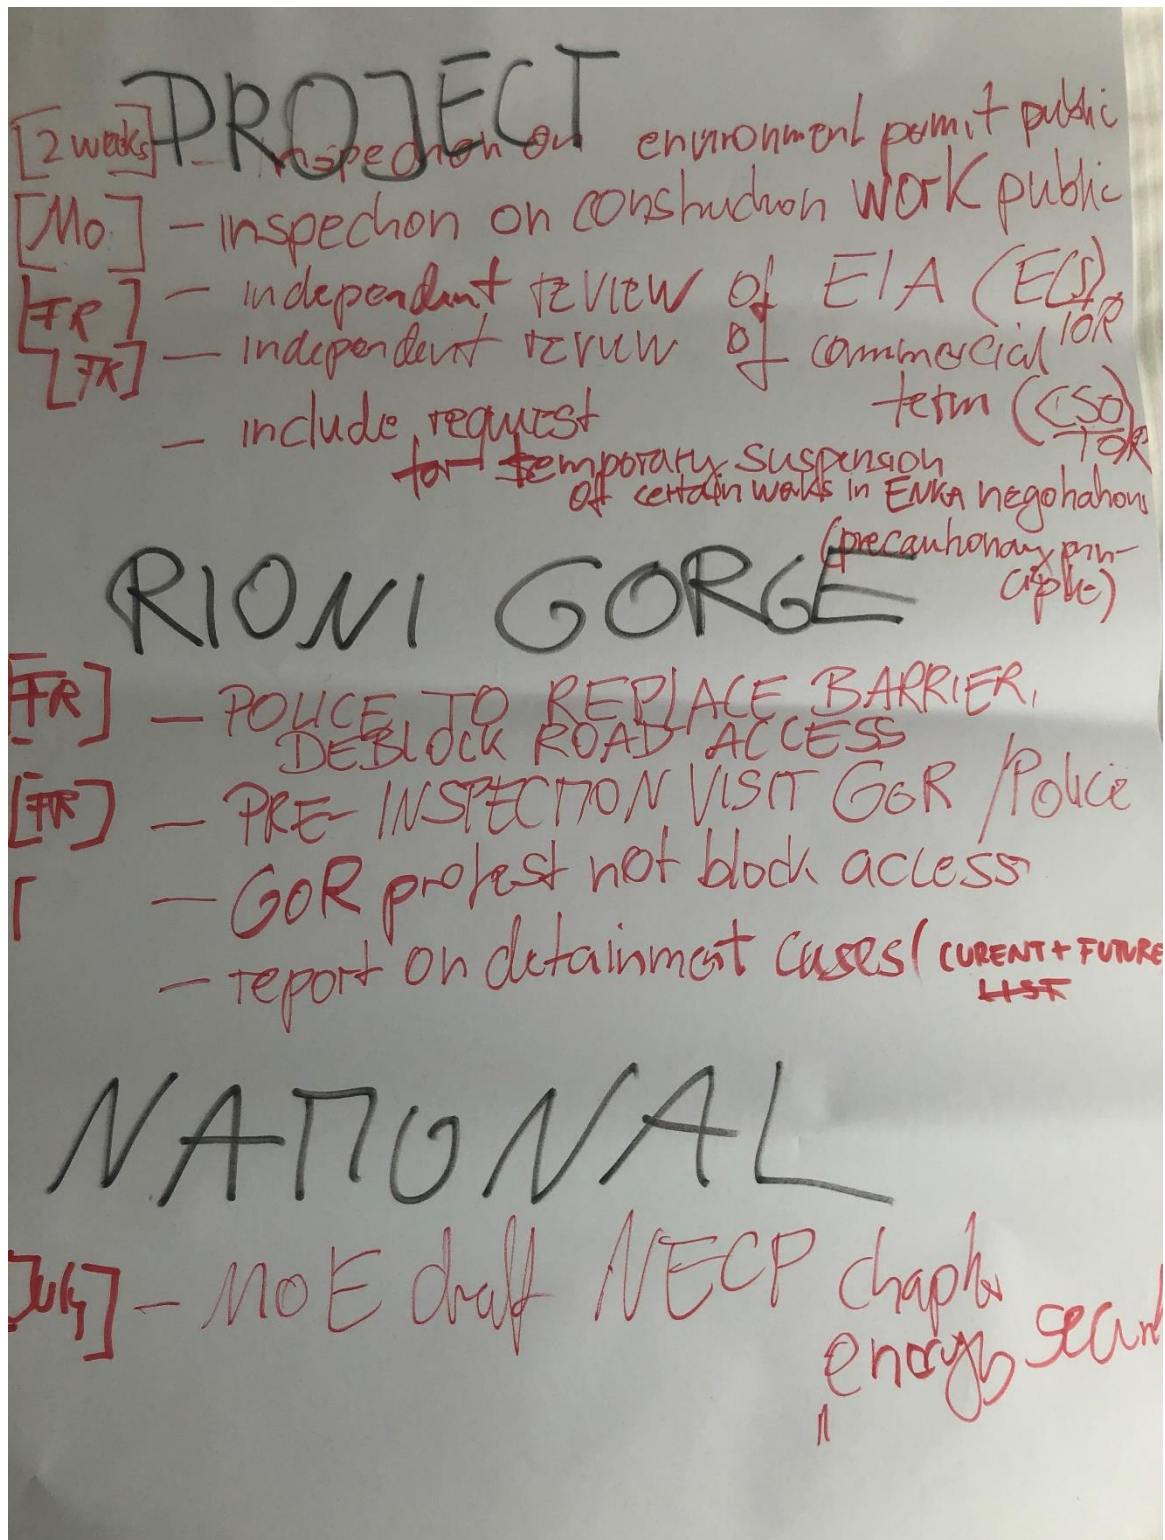 PROJECT
[2 weeks] - inspection on environment permit public
[Mo.] - inspection on construction work public
[FR] - independant review of EIA (ECS)
TOR
[FR] - independent review of commercial
term (CSO)
TOR
- include request
for temporary suspension
of certain works in ENKA negotiations
(precautionary prin-
ciple)
RIONI GORGE
[FR] - POLICE TO REPLACE BARRIER,
DEBLOCK ROAD ACCESS
[FR] - PRE-INSPECTION VISIT GoR/Police
[ - GoR protest not block access
- report on detainment cases (CURENT + FUTURE
LIST
NATIONAL
July] - MoE draft NECP chapter
energy secur